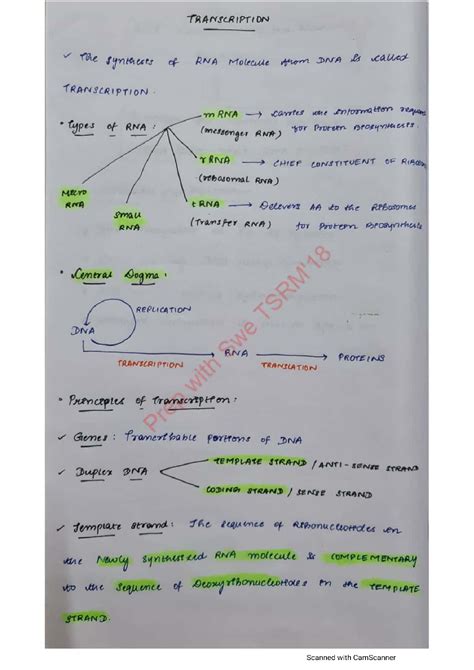 TRANSCRIPTION
✓ The synthesis of RNA Molecule from DNA is called
TRANSCRIPTION.
• Types of RNA :
mRNA → carries the information
(messenger RNA) for Protein Biosynthesis.
rRNA → CHIEF CONSTITUENT OF
(ribosomal RNA)
tRNA → Delivers AA to the Ribosomes
(Transfer RNA) for Protein Biosynthesis
MICRO
RNA
SMALL
RNA
• Central Dogma :
REPLICATION
DNA
RNA → PROTEINS
TRANSCRIPTION TRANSLATION
Prep with Swe TSRM'18
• Principles of Transcription :
✓ Genes : Transcribable portions of DNA
✓ Duplex DNA
TEMPLATE STRAND / ANTI-SENSE STRAND
CODING STRAND / SENSE STRAND
✓ Template strand : The sequence of Ribonucleotides in
the Newly synthesized RNA molecule is COMPLEMENTARY
to the sequence of Deoxyribonucleotides in the TEMPLATE
STRAND.
Scanned with CamScanner